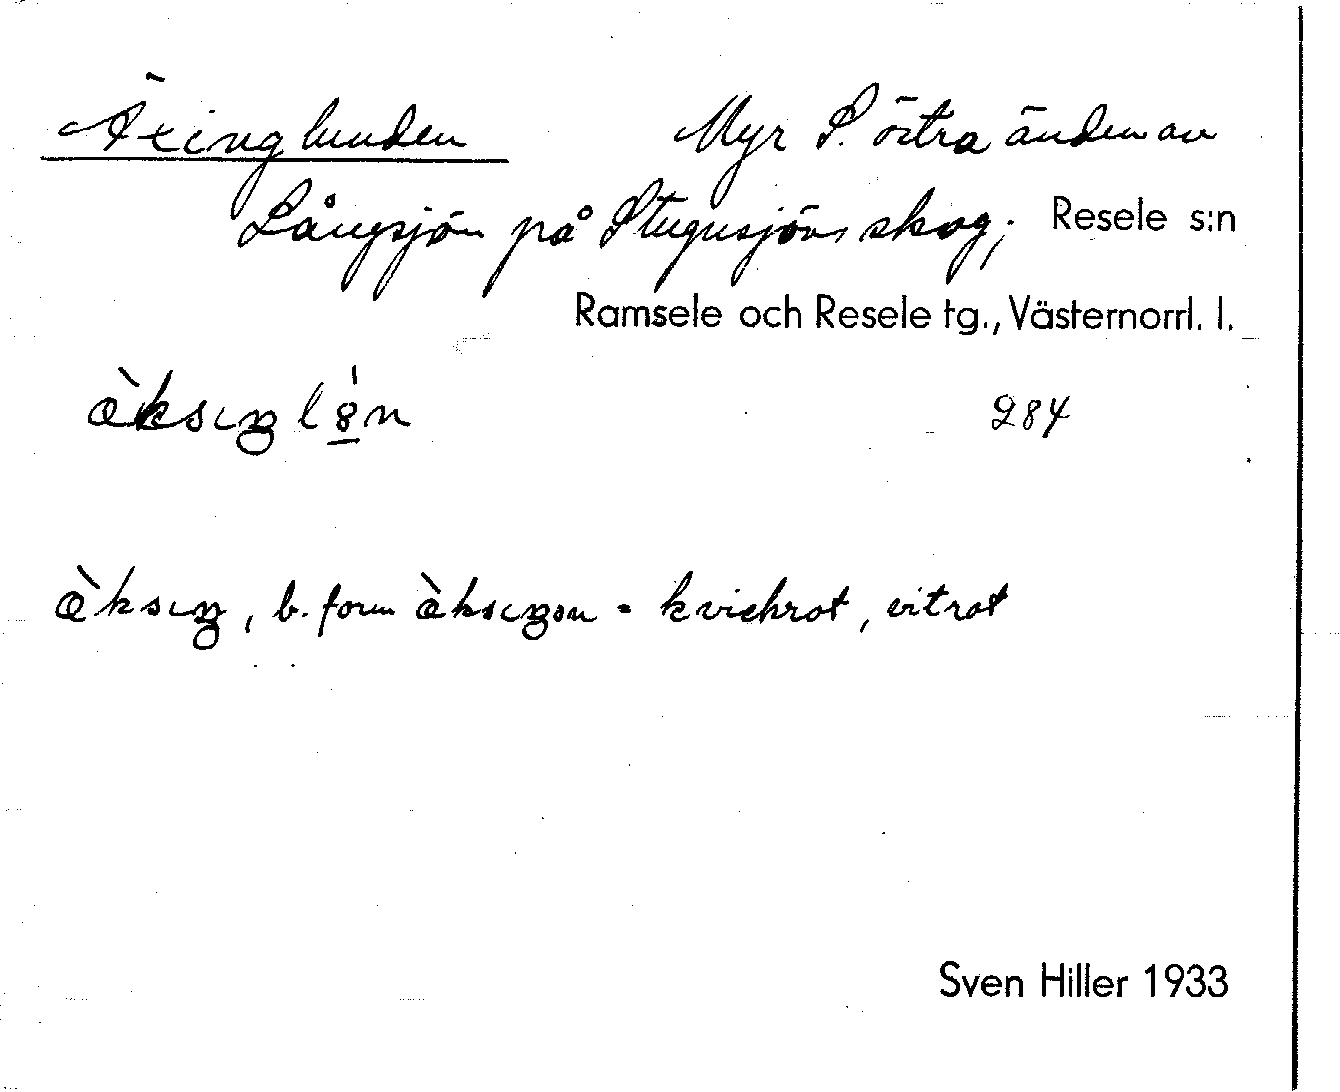 Äxinglunden Myr S. östra änden av
Långsjön på Stugusjöns skog; Resele s:n
Ramsele och Resele tg., Västernorrl. l.
284
b. form = kvickrot, vitrot
Sven Hiller 1933